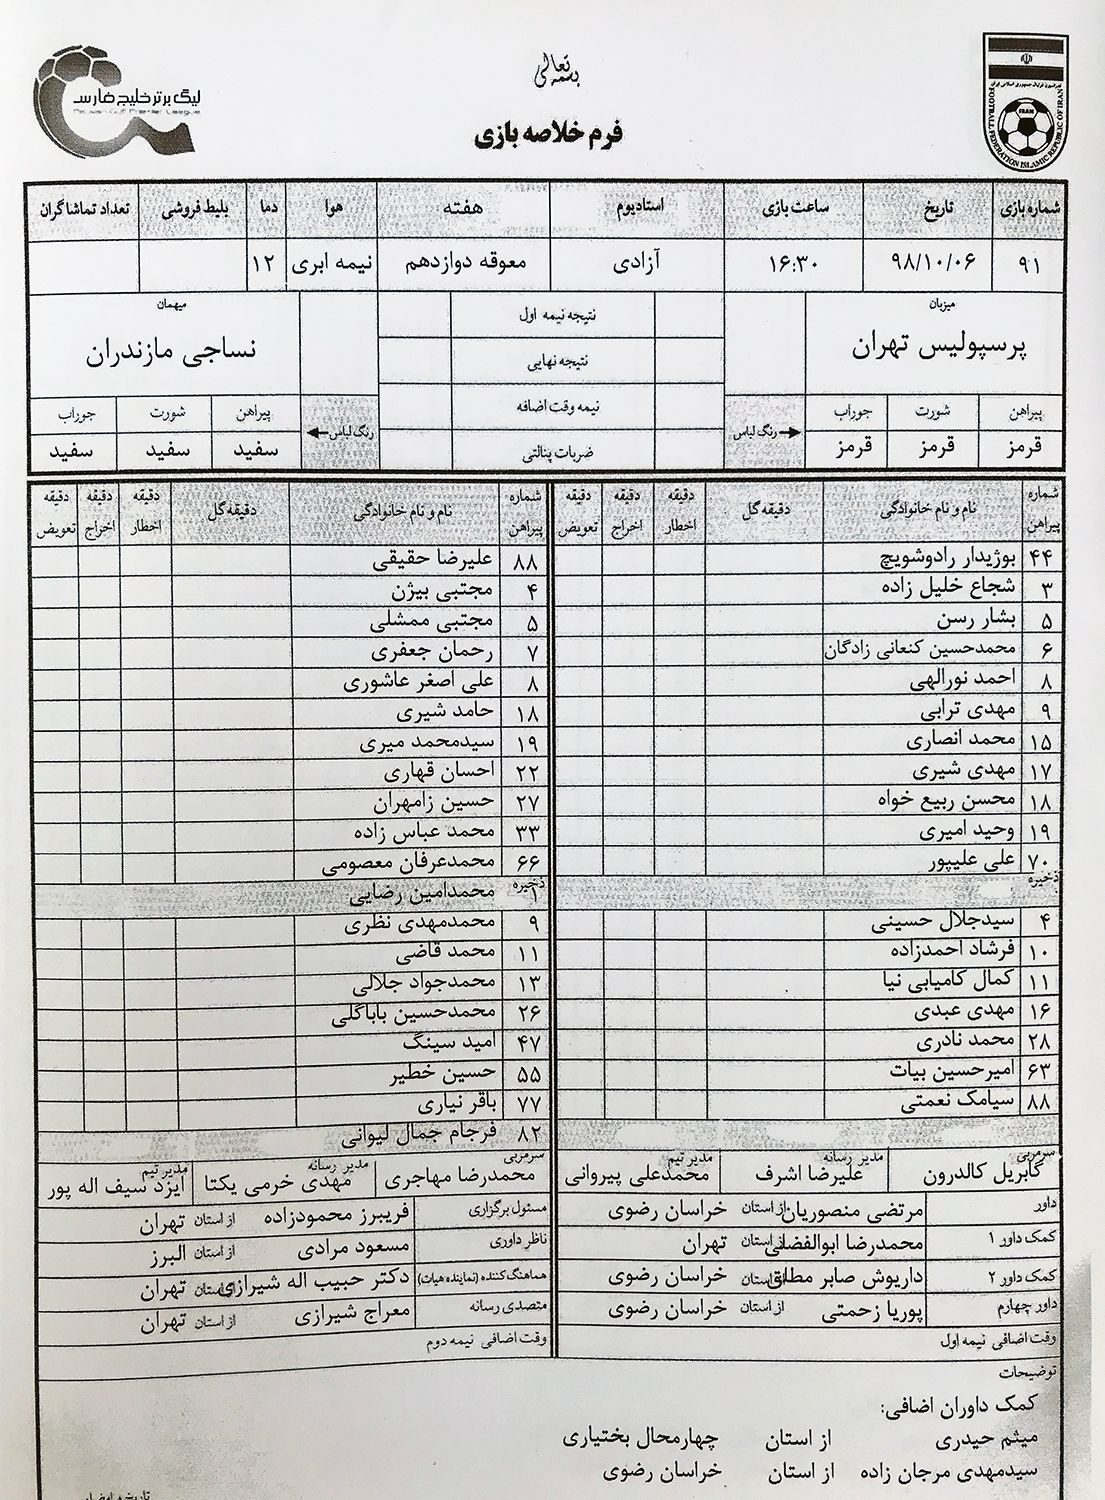 بسمه تعالی
لیگ برتر خلیج فارس
Persian Gulf Premier League
فدراسیون فوتبال جمهوری اسلامی ایران
IRAN
FOOTBALL FEDERATION ISLAMIC REPUBLIC OF IRAN
فرم خلاصه بازی
شماره بازی تاریخ ساعت بازی استادیوم هفته هوا دما بلیط فروشی تعداد تماشاگران
۹۱ ۹۸/۱۰/۰۶ ۱۶:۳۰ آزادی معوقه دوازدهم نیمه ابری ۱۲
میزبان نتیجه نیمه اول میهمان
پرسپولیس تهران نتیجه نهایی نساجی مازندران
پیراهن شورت جوراب نیمه وقت اضافه پیراهن شورت جوراب
قرمز قرمز قرمز رنگ لباس ضربات پنالتی رنگ لباس سفید سفید سفید
شماره پیراهن نام و نام خانوادگی دقیقه گل دقیقه اخطار دقیقه اخراج دقیقه تعویض شماره پیراهن نام و نام خانوادگی دقیقه گل دقیقه اخطار دقیقه اخراج دقیقه تعویض
۴۴ بوژیدار رادوشویچ ۸۸ علیرضا حقیقی
۳ شجاع خلیل زاده ۴ مجتبی بیژن
۵ بشار رسن ۵ مجتبی ممشلی
۶ محمدحسین کنعانی زادگان ۷ رحمان جعفری
۸ احمد نورالهی ۸ علی اصغر عاشوری
۹ مهدی ترابی ۱۸ حامد شیری
۱۵ محمد انصاری ۱۹ سیدمحمد میری
۱۷ مهدی شیری ۲۲ احسان قهاری
۱۸ محسن ربیع خواه ۲۷ حسین زامهران
۱۹ وحید امیری ۳۳ محمد عباس زاده
۷۰ علی علیپور ۶۶ محمدعرفان معصومی
ذخیره ذخیره ۱ محمدامین رضایی
۴ سیدجلال حسینی ۹ محمدمهدی نظری
۱۰ فرشاد احمدزاده ۱۱ محمد قاضی
۱۱ کمال کامیابی نیا ۱۳ محمدجواد جلالی
۱۶ مهدی عبدی ۲۶ محمدحسین باباگلی
۲۸ محمد نادری ۴۷ امید سینگ
۶۳ امیرحسین بیات ۵۵ حسین خطیر
۸۸ سیامک نعمتی ۷۷ باقر نیاری
۸۲ فرجام جمال لیوانی
سرمربی گابریل کالدرون مدیر رسانه علیرضا اشرف مدیر تیم محمدعلی پیروانی سرمربی محمدرضا مهاجری مدیر رسانه مهدی خرمی یکتا مدیر تیم ایزد سیف اله پور
داور مرتضی منصوریان از استان خراسان رضوی مسئول برگزاری فریبرز محمودزاده از استان تهران
کمک داور ۱ محمدرضا ابوالفضلی از استان تهران ناظر داوری مسعود مرادی از استان البرز
کمک داور ۲ داریوش صابر مطلق از استان خراسان رضوی هماهنگ کننده (نماینده هیات) دکتر حبیب اله شیرازی از استان تهران
داور چهارم پوریا زحمتی از استان خراسان رضوی متصدی رسانه معراج شیرازی از استان تهران
وقت اضافی نیمه اول وقت اضافی نیمه دوم
توضیحات
کمک داوران اضافی:
میثم حیدری از استان چهارمحال بختیاری
سیدمهدی مرجان زاده از استان خراسان رضوی